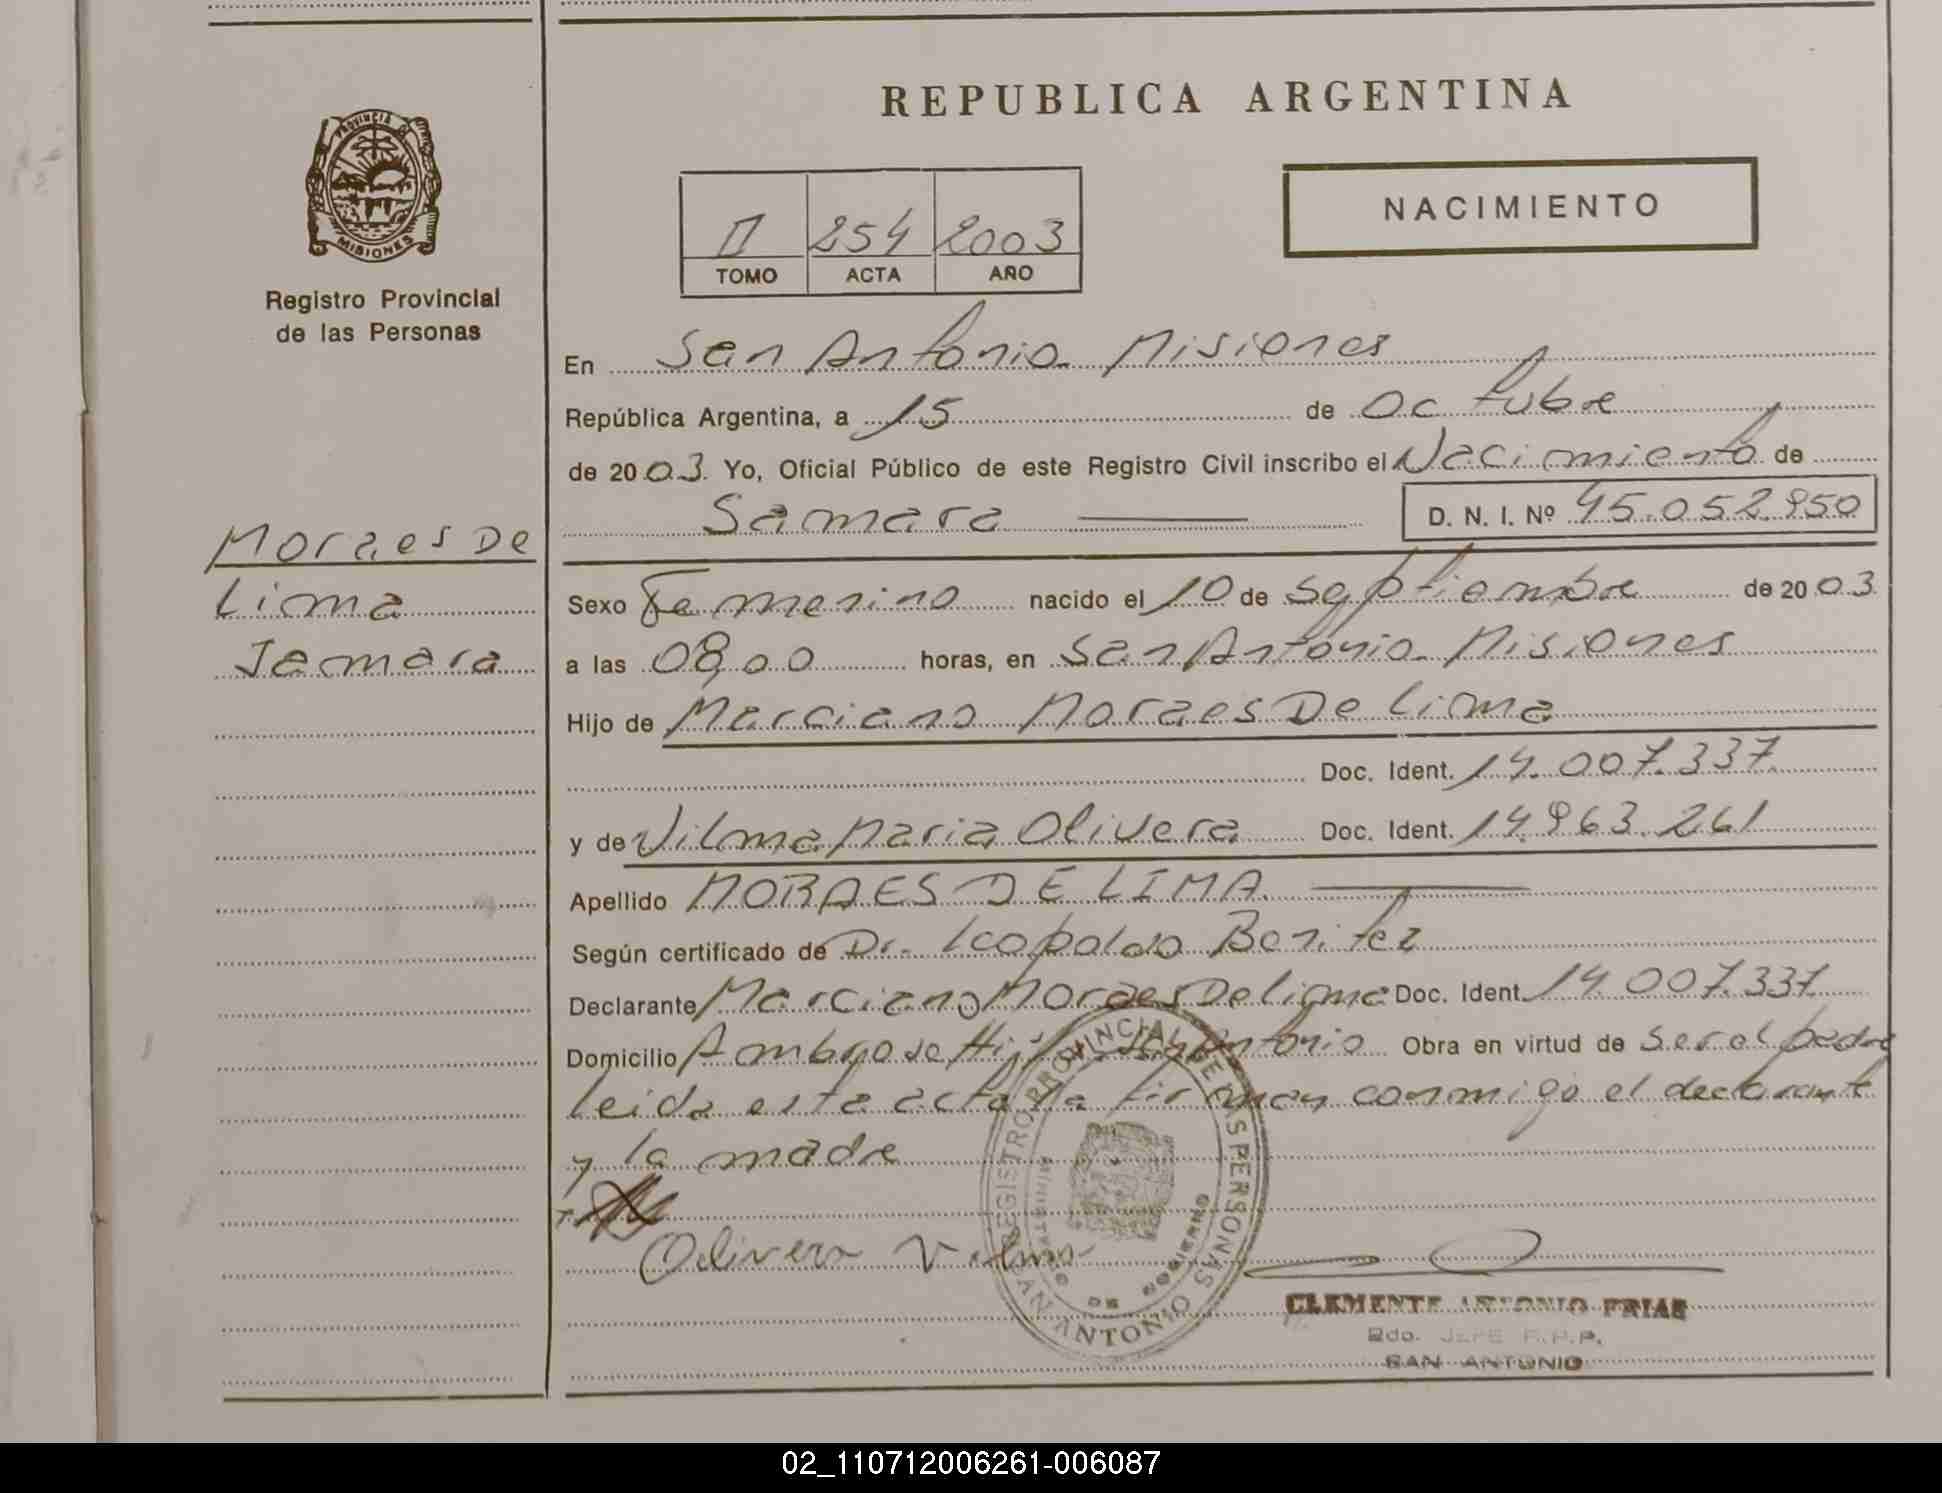 REPUBLICA ARGENTINA
PROVINCIA DE
MISIONES
Registro Provincial
de las Personas
II 254 2003
TOMO ACTA AÑO
NACIMIENTO
En San Antonio Misiones
República Argentina, a 15 de Octubre
de 2003. Yo, Oficial Público de este Registro Civil inscribo el Nacimiento de
Samara D. N. I. Nº 45.052.950
Moraes De
Lima
Samara
Sexo Femenino nacido el 10 de Septiembre de 2003
a las 08,00 horas, en San Antonio Misiones
Hijo de Marciano Moraes De Lima
Doc. Ident. 14.007.337
y de Vilma Maria Olivera Doc. Ident. 14.963.261
Apellido MORAES DE LIMA
Según certificado de Dr. Leopoldo Benitez
Declarante Marciano Moraes De Lima Doc. Ident. 14.007.337
Domicilio San Antonio Obra en virtud de ser el padre
leida esta acta la firman conmigo el declarante
y la madre
Olivera Vilma
REGISTRO PROVINCIAL DE LAS PERSONAS
MINISTERIO DE GOBIERNO
SAN ANTONIO
CLEMENTE ANTONIO FRIAS
JEFE R.P.P.
SAN ANTONIO
02_110712006261-006087